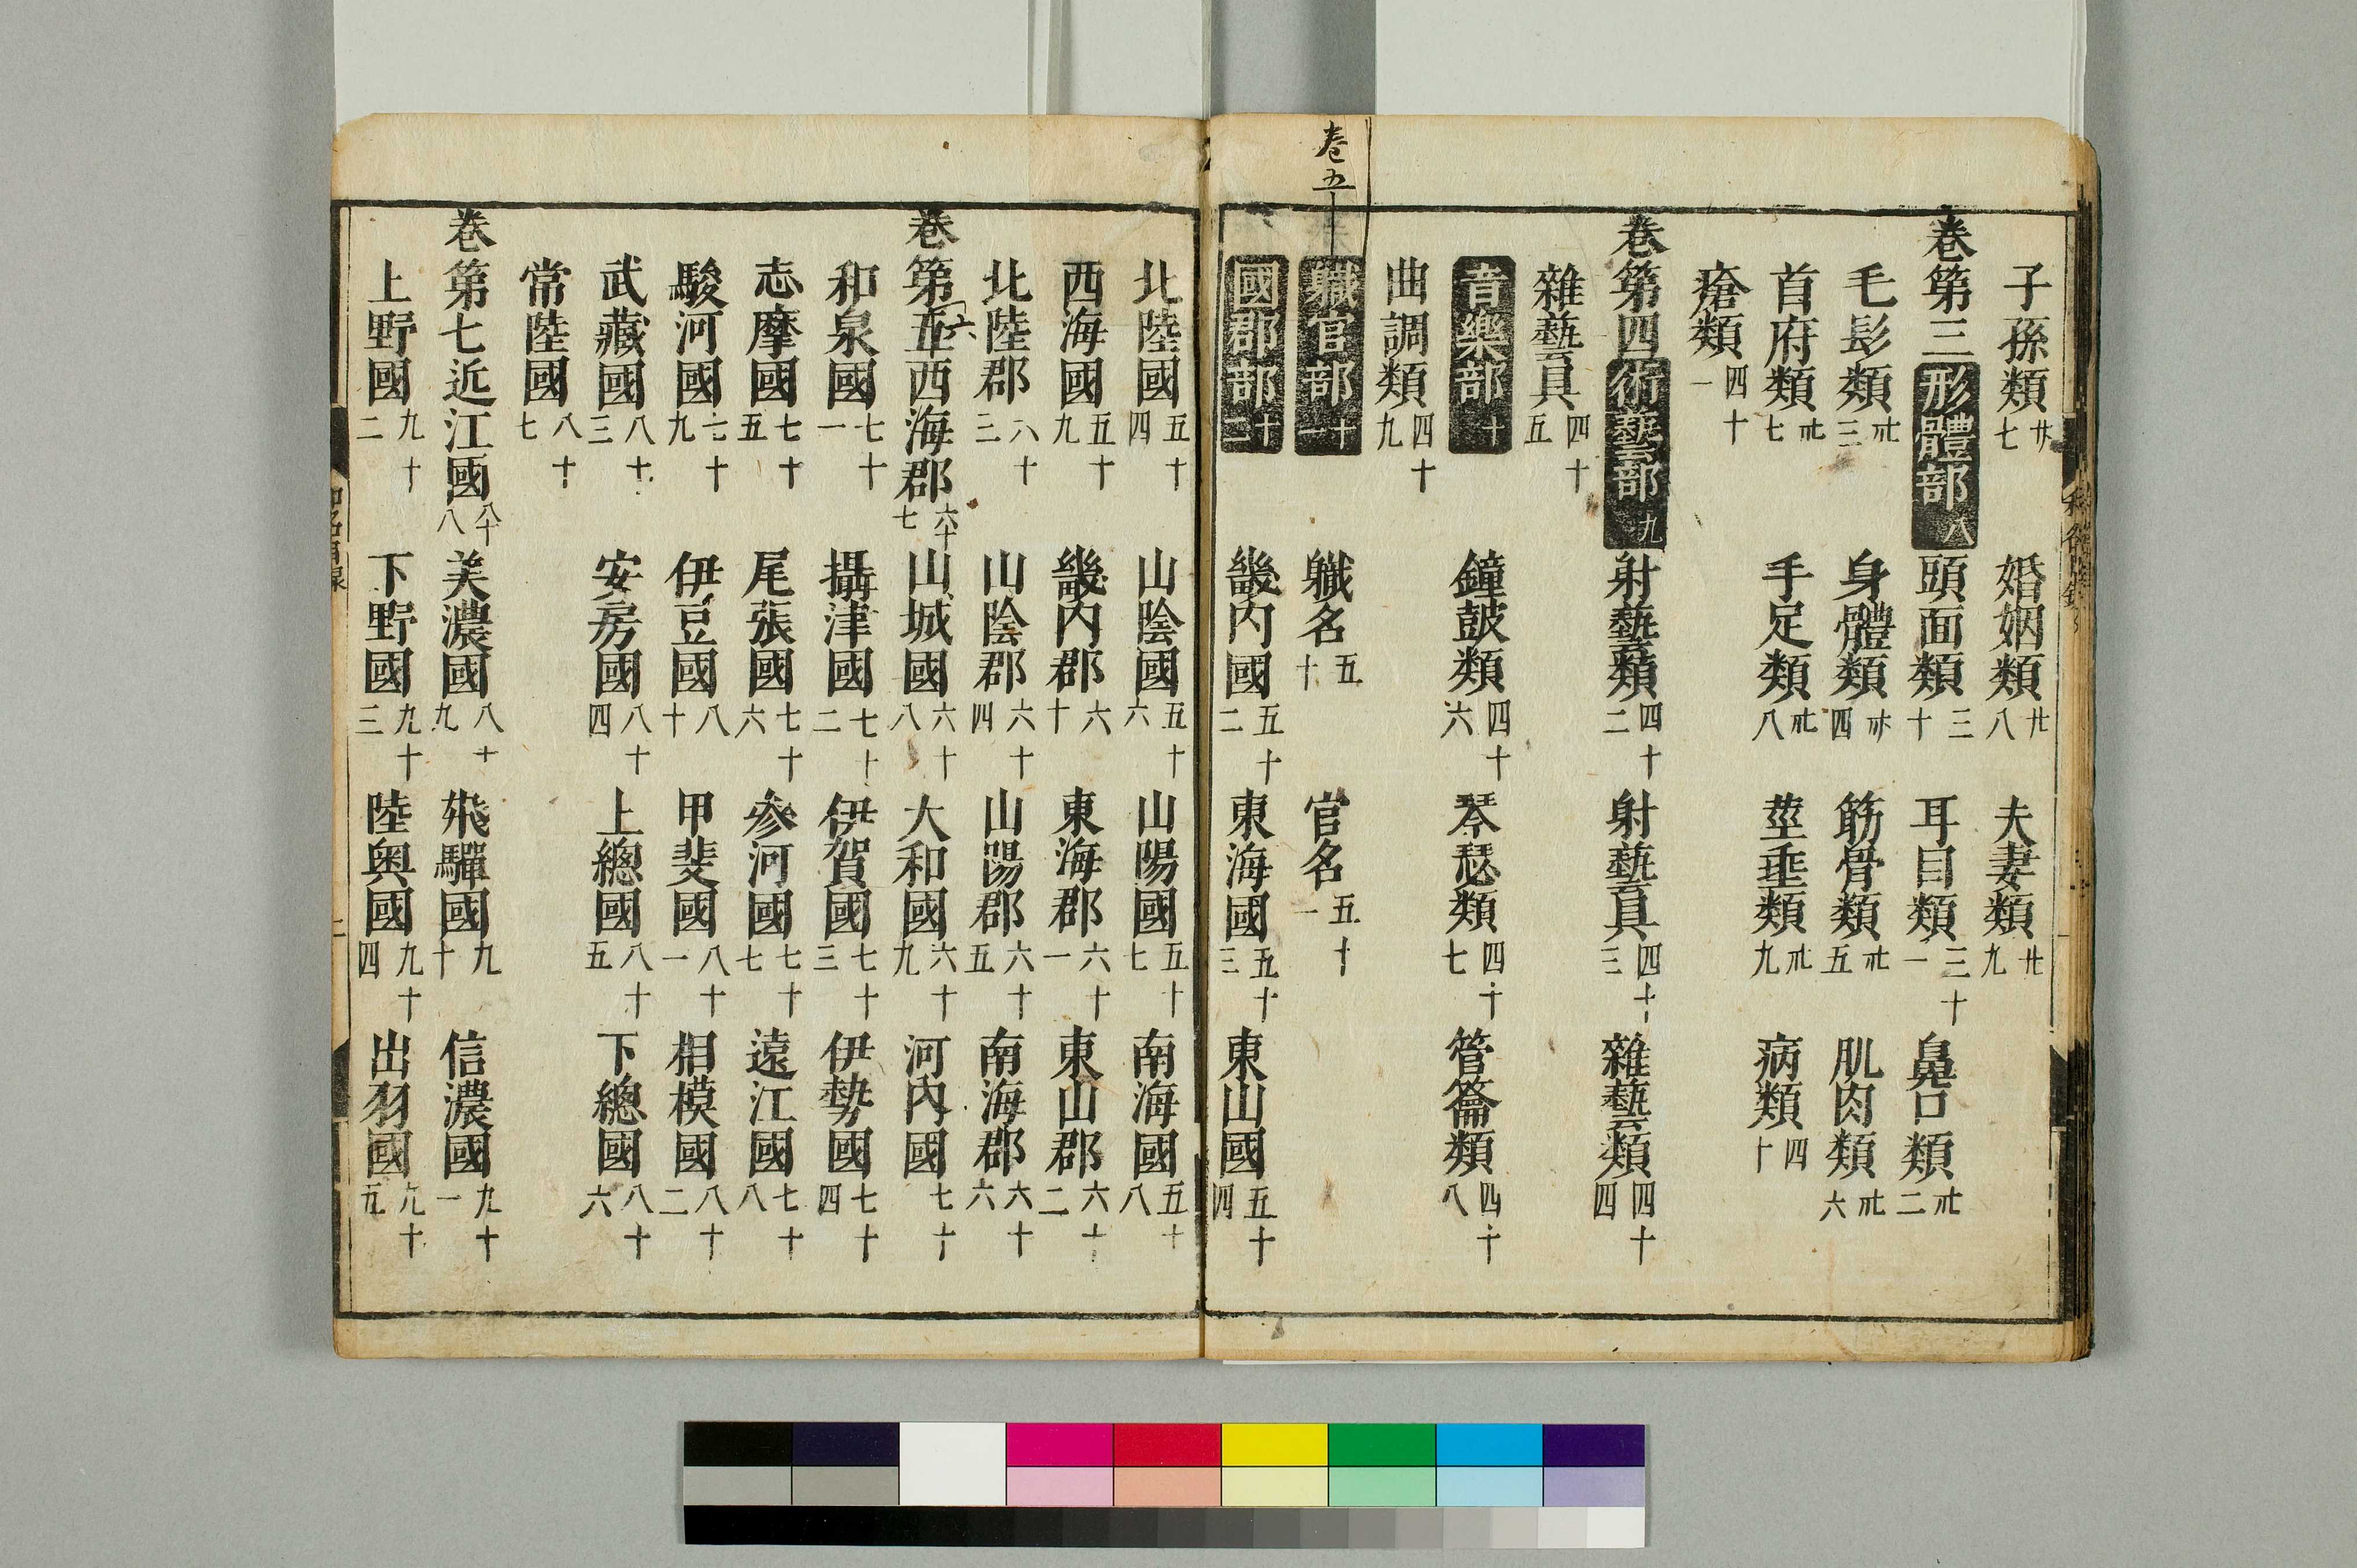 子孫類 廿七 婚姻類 廿八 夫妻類 廿九
卷第三 形體部 八 頭面類 三十 耳目類 三十一 鼻口類 卅二
毛髟類 卅三 身體類 卅四 筋骨類 卅五 肌肉類 卅六
首府類 卅七 手足類 卅八 莖垂類 卅九 病類 四十
瘡類 四十一
卷第四 術藝部 九 射藝類 四十二 射藝具 四十三 雜藝類 四十四
雜藝具 四十五
音樂部 十 鐘鼓類 四十六 琴瑟類 四十七 管籥類 四十八
曲調類 四十九
卷五
職官部 十一 職名 五十 官名 五十一
國郡部 十二 畿內國 五十二 東海國 五十三 東山國 五十四
北陸國 五十四 山陰國 五十六 山陽國 五十七 南海國 五十八
西海國 五十九 畿內郡 六十 東海郡 六十一 東山郡 六十二
北陸郡 六十三 山陰郡 六十四 山陽郡 六十五 南海郡 六十六
卷第五 六 西海郡 六十七 山城國 六十八 大和國 六十九 河內國 七十
和泉國 七十一 攝津國 七十二 伊賀國 七十三 伊勢國 七十四
志摩國 七十五 尾張國 七十六 參河國 七十七 遠江國 七十八
駿河國 七十九 伊豆國 八十 甲斐國 八十一 相模國 八十二
武藏國 八十三 安房國 八十四 上總國 八十五 下總國 八十六
常陸國 八十七
卷第七 近江國 八十八 美濃國 八十九 飛驒國 九十 信濃國 九十一
上野國 九十二 下野國 九十三 陸奧國 九十四 出羽國 九十五